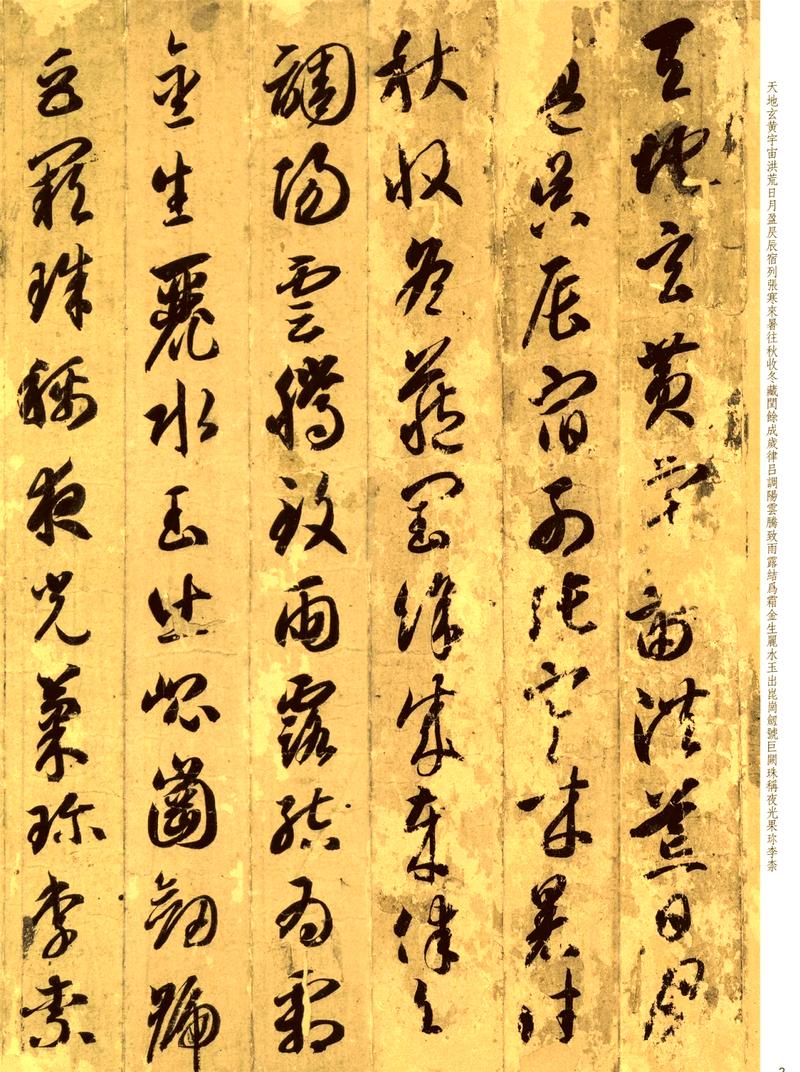 天地玄黄宇宙洪荒日月盈昃辰宿列張寒來暑往秋收冬藏閏餘成歲律吕調陽雲騰致雨露結爲霜金生麗水玉出崑崗劒號巨闕珠稱夜光果珎李柰
天地玄黄宇宙洪荒日月
盈昃辰宿列張寒來暑往
秋收冬藏閏餘成歲律吕
調陽雲騰致雨露結爲霜
金生麗水玉出崑崗劒號
巨闕珠稱夜光果珎李柰